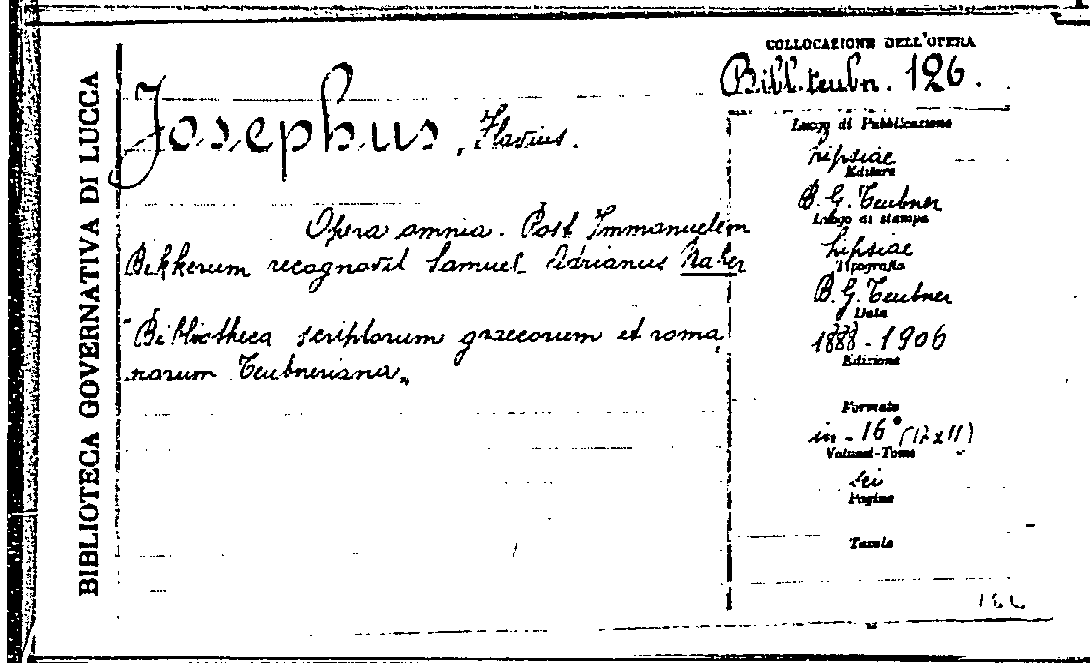 BIBLIOTECA GOVERNATIVA DI LUCCA
Josephus, Flavius.
Opera omnia. Post Immanuelem
Bekkerum recognovit Samuel Adrianus Naber
"Bibliotheca scriptorum graecorum et roma
norum Teubneriana„
COLLOCAZIONE DELL'OPERA
Bibl. teubn. 126.
Luogo di Pubblicazione
Lipsiae
Editore
B. G. Teubner
Luogo di stampa
Lipsiae
Tipografia
B. G. Teubner
Data
1888-1906
Edizione
Formato
in-16° (17x11)
Volumi-Tomi
sei
Pagine
Tavole